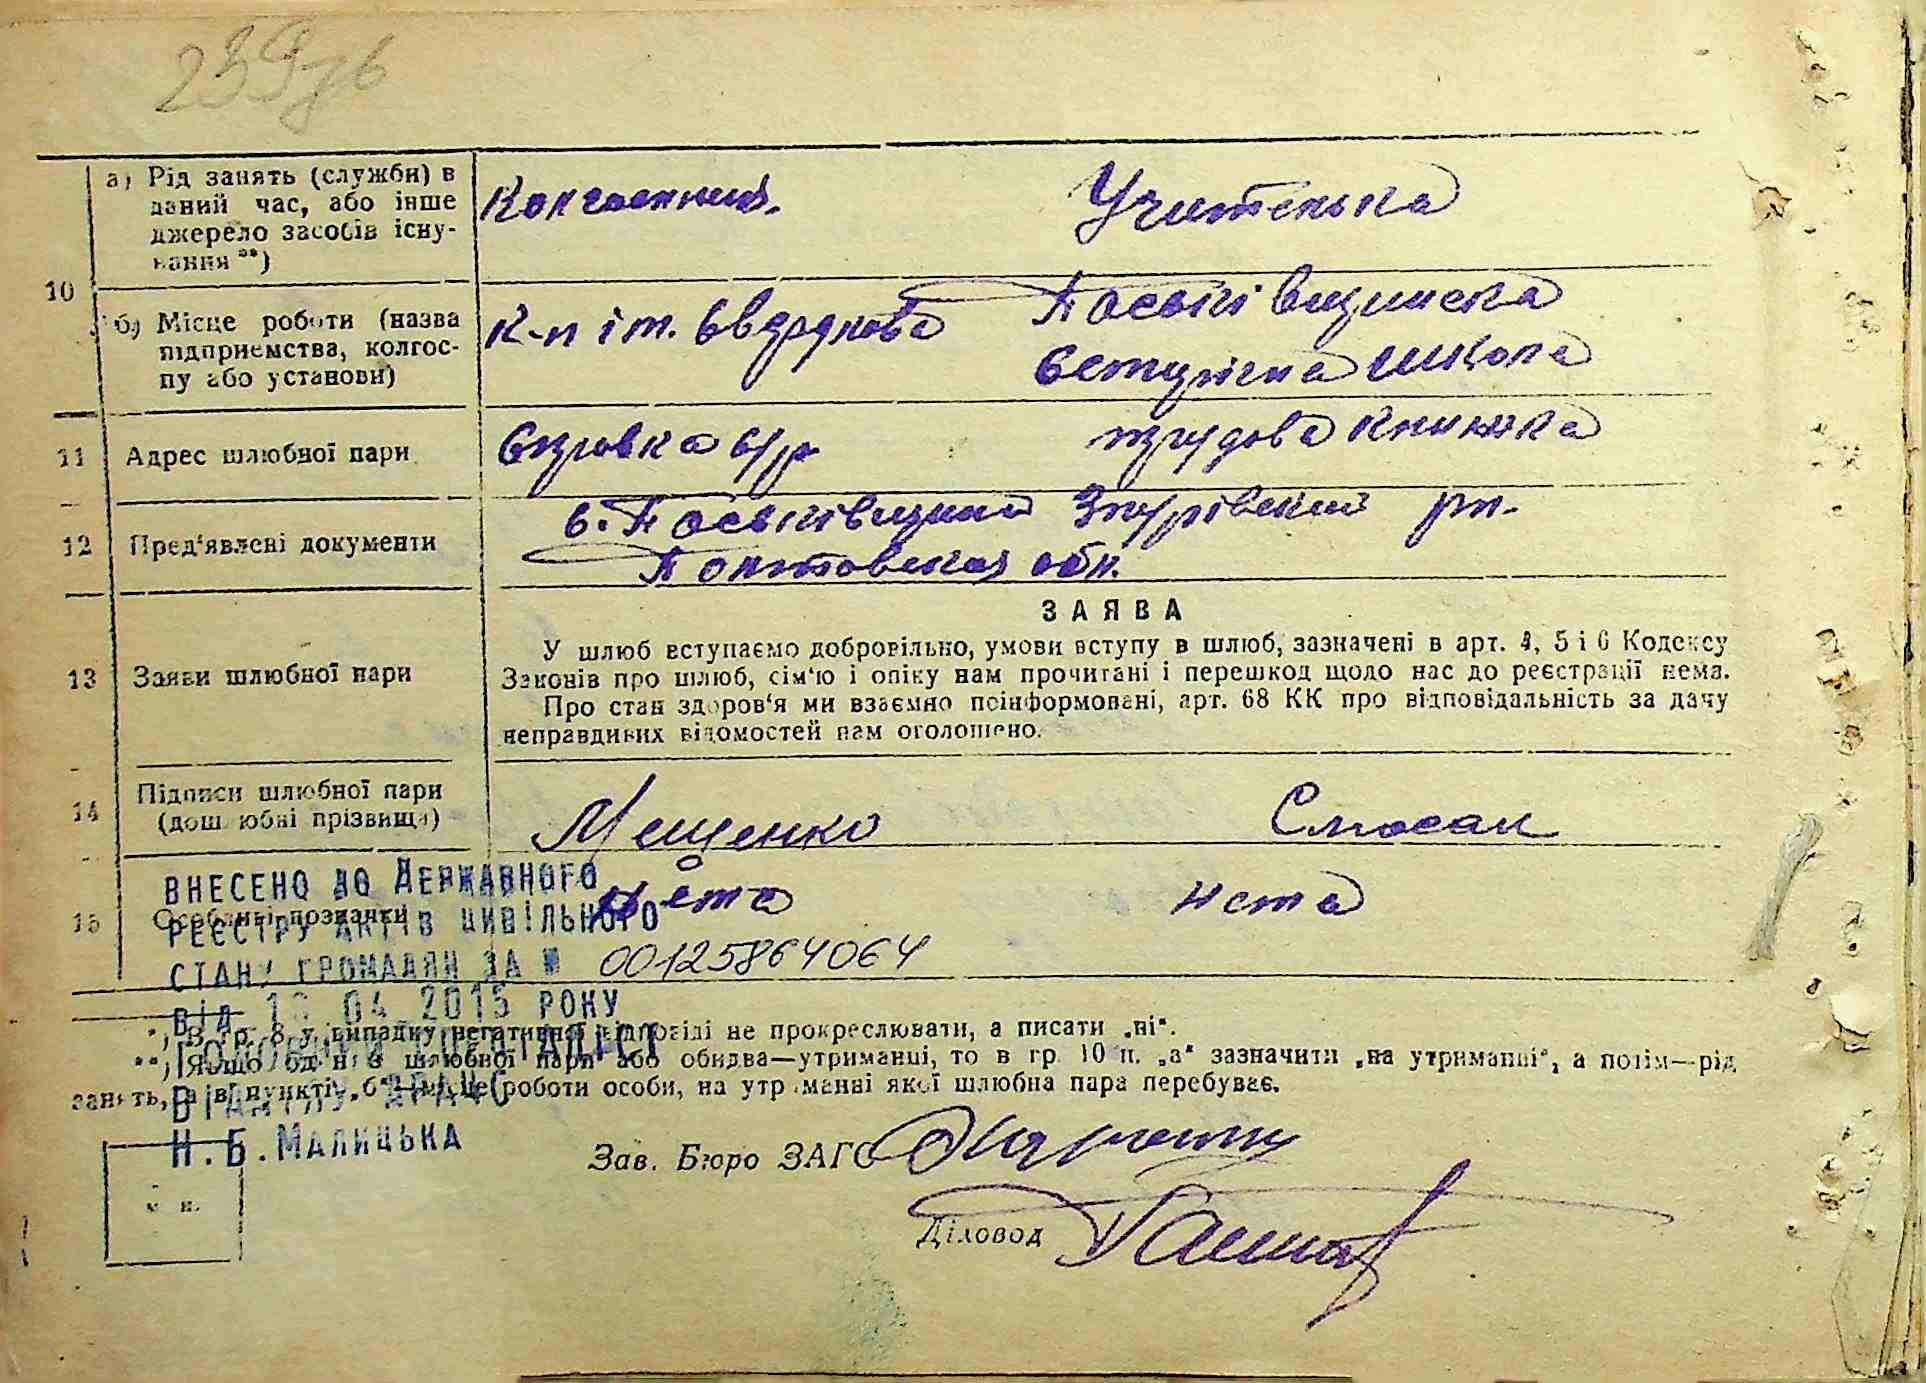 239зв
10
а) Рід занять (служби) в
даний час, або інше
джерело засобів існу-
вання **)
Колгоспник.
Учителька
б) Місце роботи (назва
підприємства, колгос-
пу або установи)
К-п ім. Свердлова
Паськівщинська
Семирічна школа
11 Адрес шлюбної пари
Справка с/р
трудова книжка
12 Пред'явлені документи
с. Паськівщина Згурівский рн.
Полтовская обл.
13 Заяви шлюбної пари
ЗАЯВА
У шлюб вступаємо добровільно, умови вступу в шлюб, зазначені в арт. 4, 5 і 6 Кодексу
Законів про шлюб, сім'ю і опіку нам прочитані і перешкод щодо нас до реєстрації нема.
Про стан здоров'я ми взаємно поінформовані, арт. 68 КК про відповідальність за дачу
неправдивих відомостей нам оголошено.
14 Підписи шлюбної пари
(дошлюбні прізвища)
Мещенко
Слюсар
15 Особливі позначки
нета
нета
ВНЕСЕНО ДО ДЕРЖАВНОГО
РЕЄСТРУ АКТІВ ЦИВІЛЬНОГО
СТАНУ ГРОМАДЯН ЗА № 00125864064
ВІД 04 2015 РОКУ
ВІДДІЛУ ДРАЦС
Н.Б.МАЛИЦЬКА
*) В гр. 8 у випадку негативної відповіді не прокреслювати, а писати „ні“.
**) Якщо один із шлюбної пари або обидва—утриманці, то в гр. 10 п. „а“ зазначити „на утриманні“, а потім—рід
занять, а в пункті „б“—місце роботи особи, на утриманні якої шлюбна пара перебуває.
Зав. Бюро ЗАГС
м. п.
Діловод